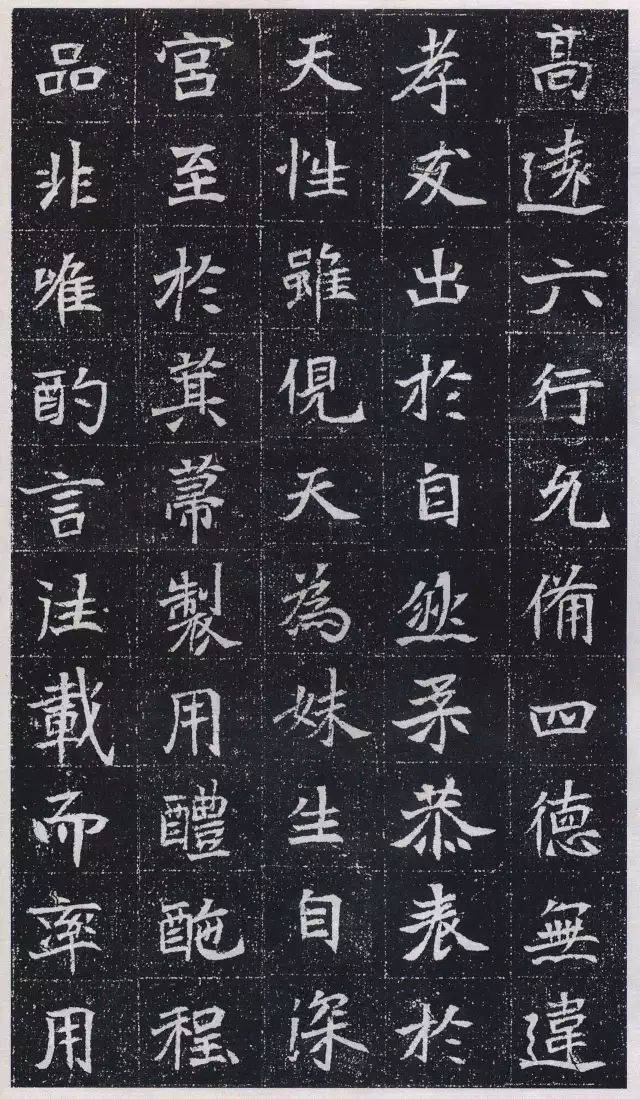 髙遠六行允備四徳無違
孝友出於自然柔恭表於
天性雖俔天為妹生自深
宮至於萁菷製用醴酏程
品非唯酌言往載而率用